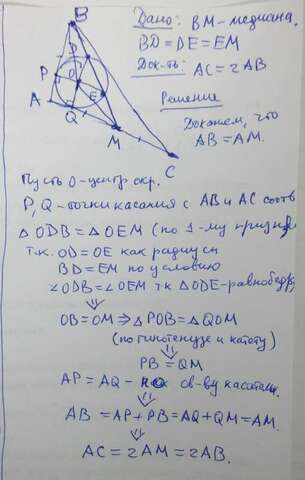 B
D
P
O
E
A
Q
M
C
Дано: BM - медиана.
BD = DE = EM
Док-ть: AC = 2AB
Решение
Докажем, что
AB = AM.
Пусть O - центр окр.
P, Q - точки касания с AB и AC соотв
△ODB = △OEM (по 1-му призна
т.к. OD = OE как радиусы
BD = EM по условию
∠ODB = ∠OEM т.к △ODE - равнобедр
⇓
OB = OM ⇒ △POB = △QOM
(по гипотенузе и катету)
⇓
PB = QM
AP = AQ - св-ву касательн.
⇓
AB = AP + PB = AQ + QM = AM.
⇓
AC = 2AM = 2AB.